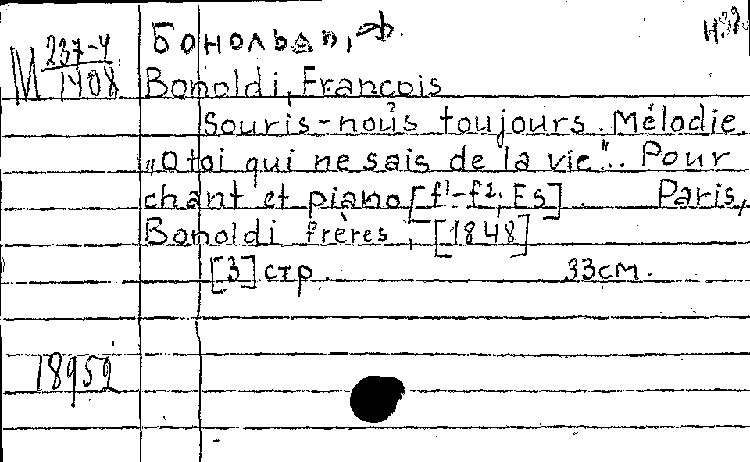 М 237-4/1408
Бонольди, Ф.
Bonoldi, François
Souris-nous toujours. Mélodie
„O toi qui ne sais de la vie“.. Pour
chant et piano [f¹-f²; Es]. Paris,
Bonoldi frères, [1848]
[3] стр. 33см.
18952